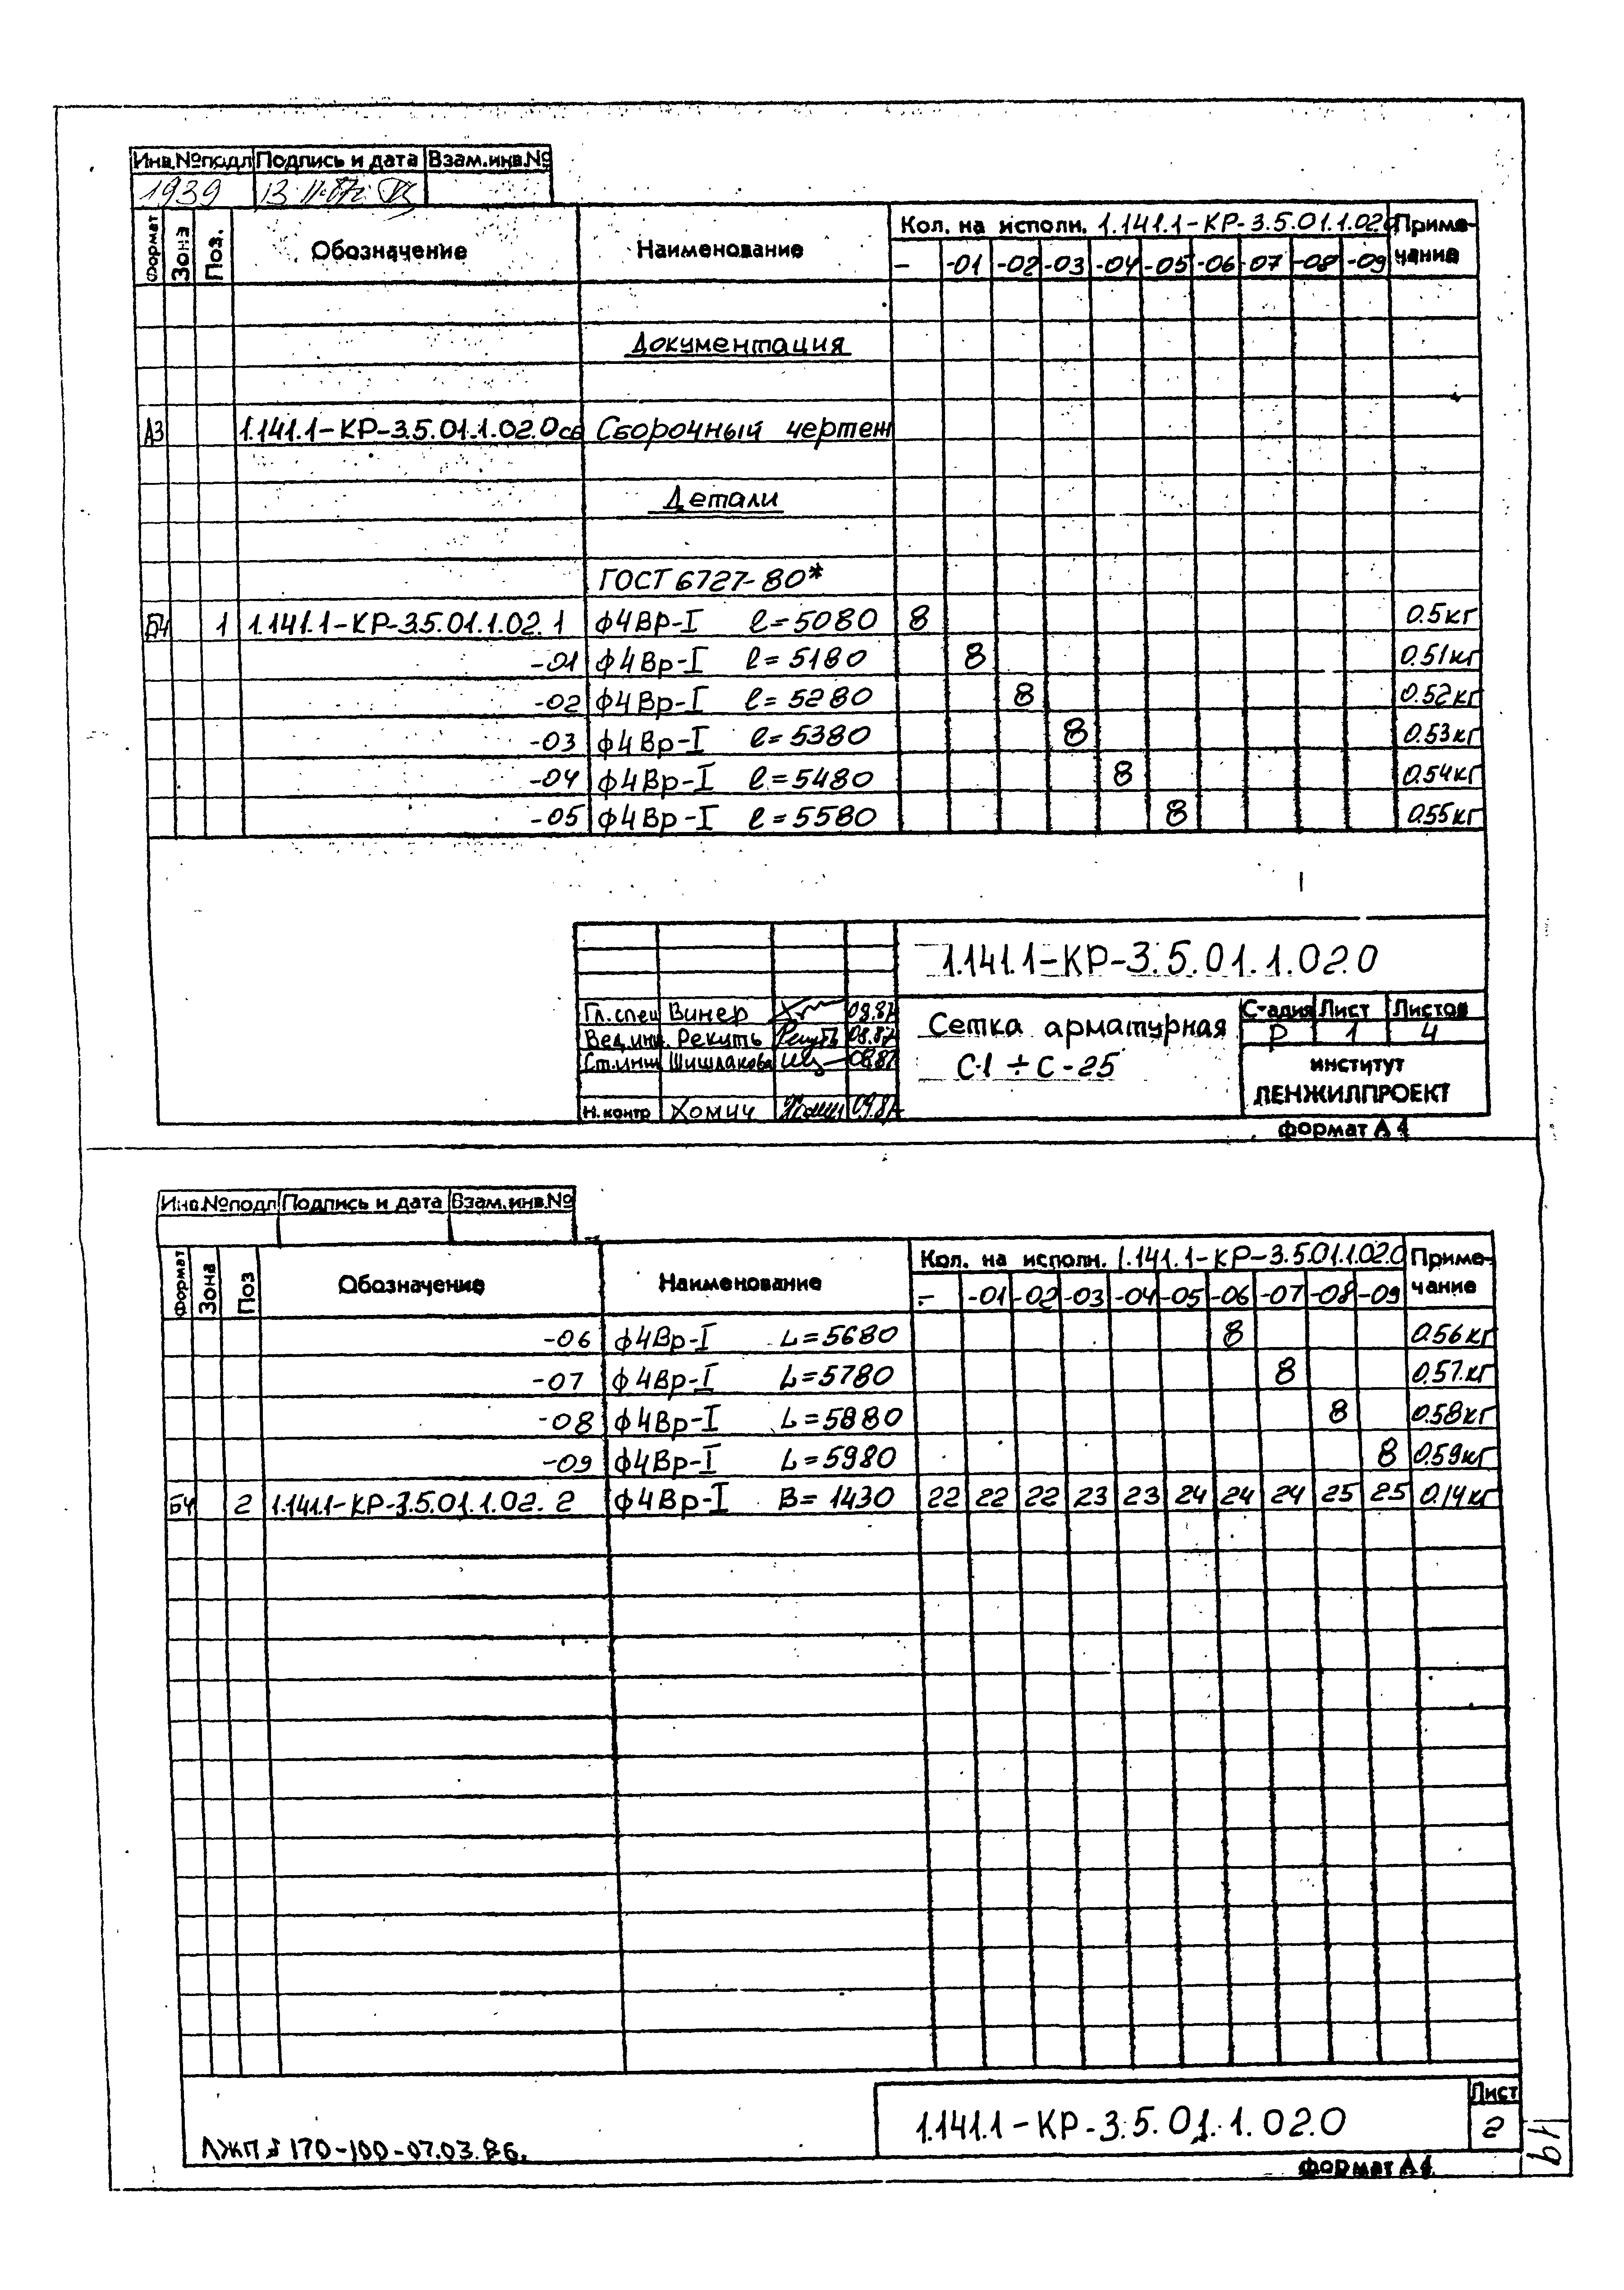 Инв.№подл Подпись и дата Взам.инв.№
1939 13.11.87г.
Формат Зона Поз. Обозначение Наименование Кол. на исполн. 1.141.1-КР-3.5.01.1.02.0 Приме-чание
- -01 -02 -03 -04 -05 -06 -07 -08 -09
Документация
А3 1.141.1-КР-3.5.01.1.02.0сб Сборочный чертеж
Детали
ГОСТ 6727-80*
Б4 1 1.141.1-КР-3.5.01.1.02.1 ф4Вр-I l=5080 8 0.5кг
-01 ф4Вр-I l=5180 8 0.51кг
-02 ф4Вр-I l=5280 8 0.52кг
-03 ф4Вр-I l=5380 8 0.53кг
-04 ф4Вр-I l=5480 8 0.54кг
-05 ф4Вр-I l=5580 8 0.55кг
1.141.1-КР-3.5.01.1.02.0
Гл.спец Винер 08.87
Вед.инж. Рекить 08.87
Ст.инж Шишлакова 08.87
Н.контр Хомич 09.87
Сетка арматурная
С-1 ÷ С-25
Стадия Лист Листов
Р 1 4
институт
ЛЕНЖИЛПРОЕКТ
формат А4
Инв.№подл Подпись и дата Взам.инв.№
Формат Зона Поз Обозначение Наименование Кол. на исполн. 1.141.1-КР-3.5.01.1.02.0 Приме-чание
- -01 -02 -03 -04 -05 -06 -07 -08 -09
-06 ф4Вр-I L=5680 8 0.56кг
-07 ф4Вр-I L=5780 8 0.57кг
-08 ф4Вр-I L=5880 8 0.58кг
-09 ф4Вр-I L=5980 8 0.59кг
Б4 2 1.141.1-КР-3.5.01.1.02.2 ф4Вр-I B=1430 22 22 22 23 23 24 24 24 25 25 0.14кг
1.141.1-КР-3.5.01.1.02.0
Лист
2
170-100-07.03.86.
формат А4
49